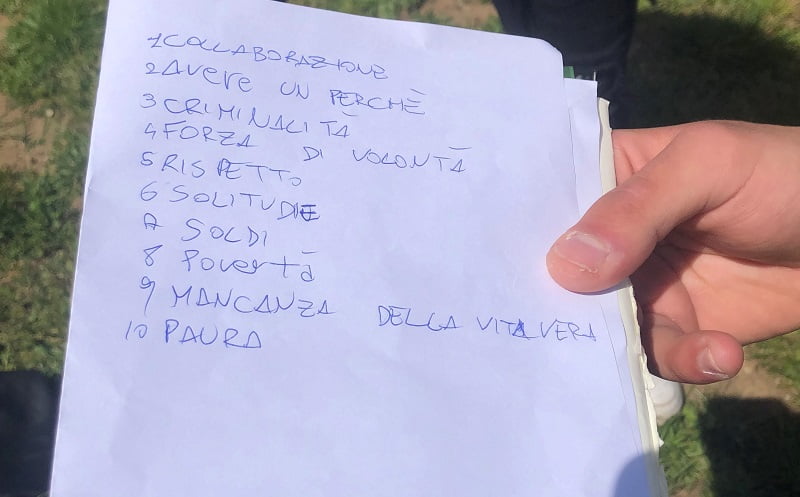 1 COLLABORAZIONE
2 Avere UN PERCHÈ
3 CRIMINALITÀ
4 FORZA DI VOLONTÀ
5 RISPETTO
6 SOLITUDIE
7 SOLDI
8 Povertà
9 MANCANZA DELLA VITA VERA
10 PAURA